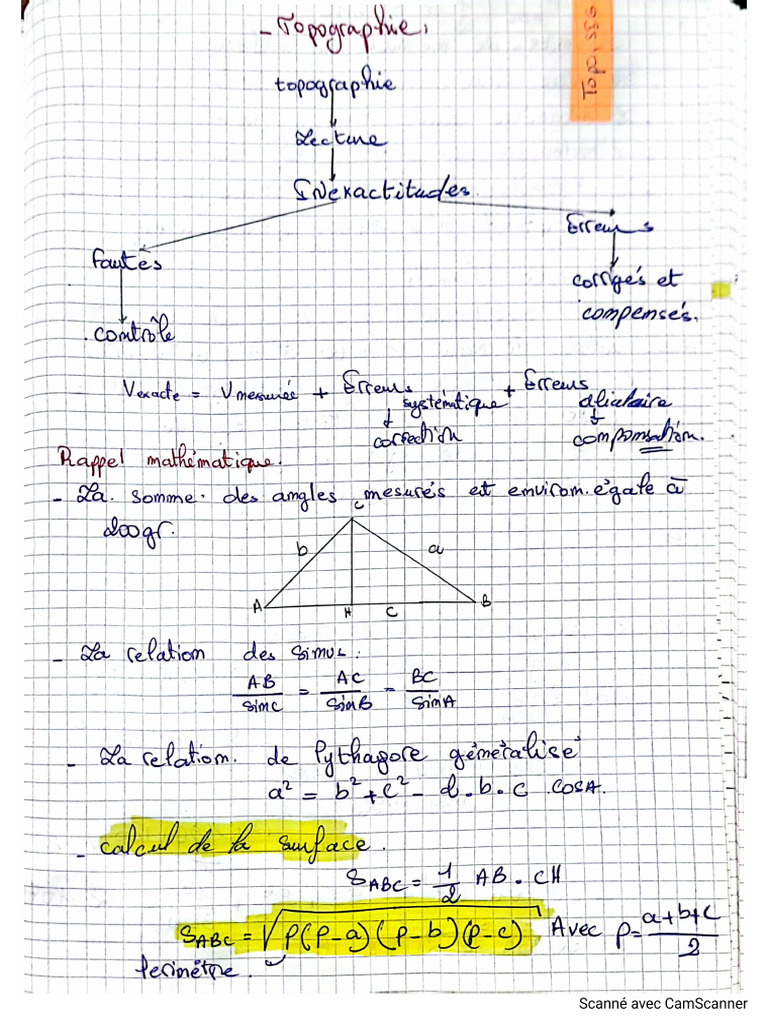 - Topographie.
Topo, S36
topographie
Lecture
Inéxactitudes.
Fautes
Erreurs
corrigés et
compensés.
contrôle
Vexacte = Vmesurée + Erreurs systématique + Erreurs aliataire
correction
compensation.
Rappel mathématique.
- La somme des angles mesurés est environ égale à
200gr.
C
b
a
A
H
C
B
- La relation des sinus :
AB/sinC = AC/sinB = BC/sinA
- La relation de Pythagore généralisé
a² = b² + c² - 2.b.c cosA.
- calcul de la surface.
SABC = 1/2 AB . CH
SABC = √p(p-a)(p-b)(p-c) Avec p = a+b+c/2
Perimètre.
Scanné avec CamScanner